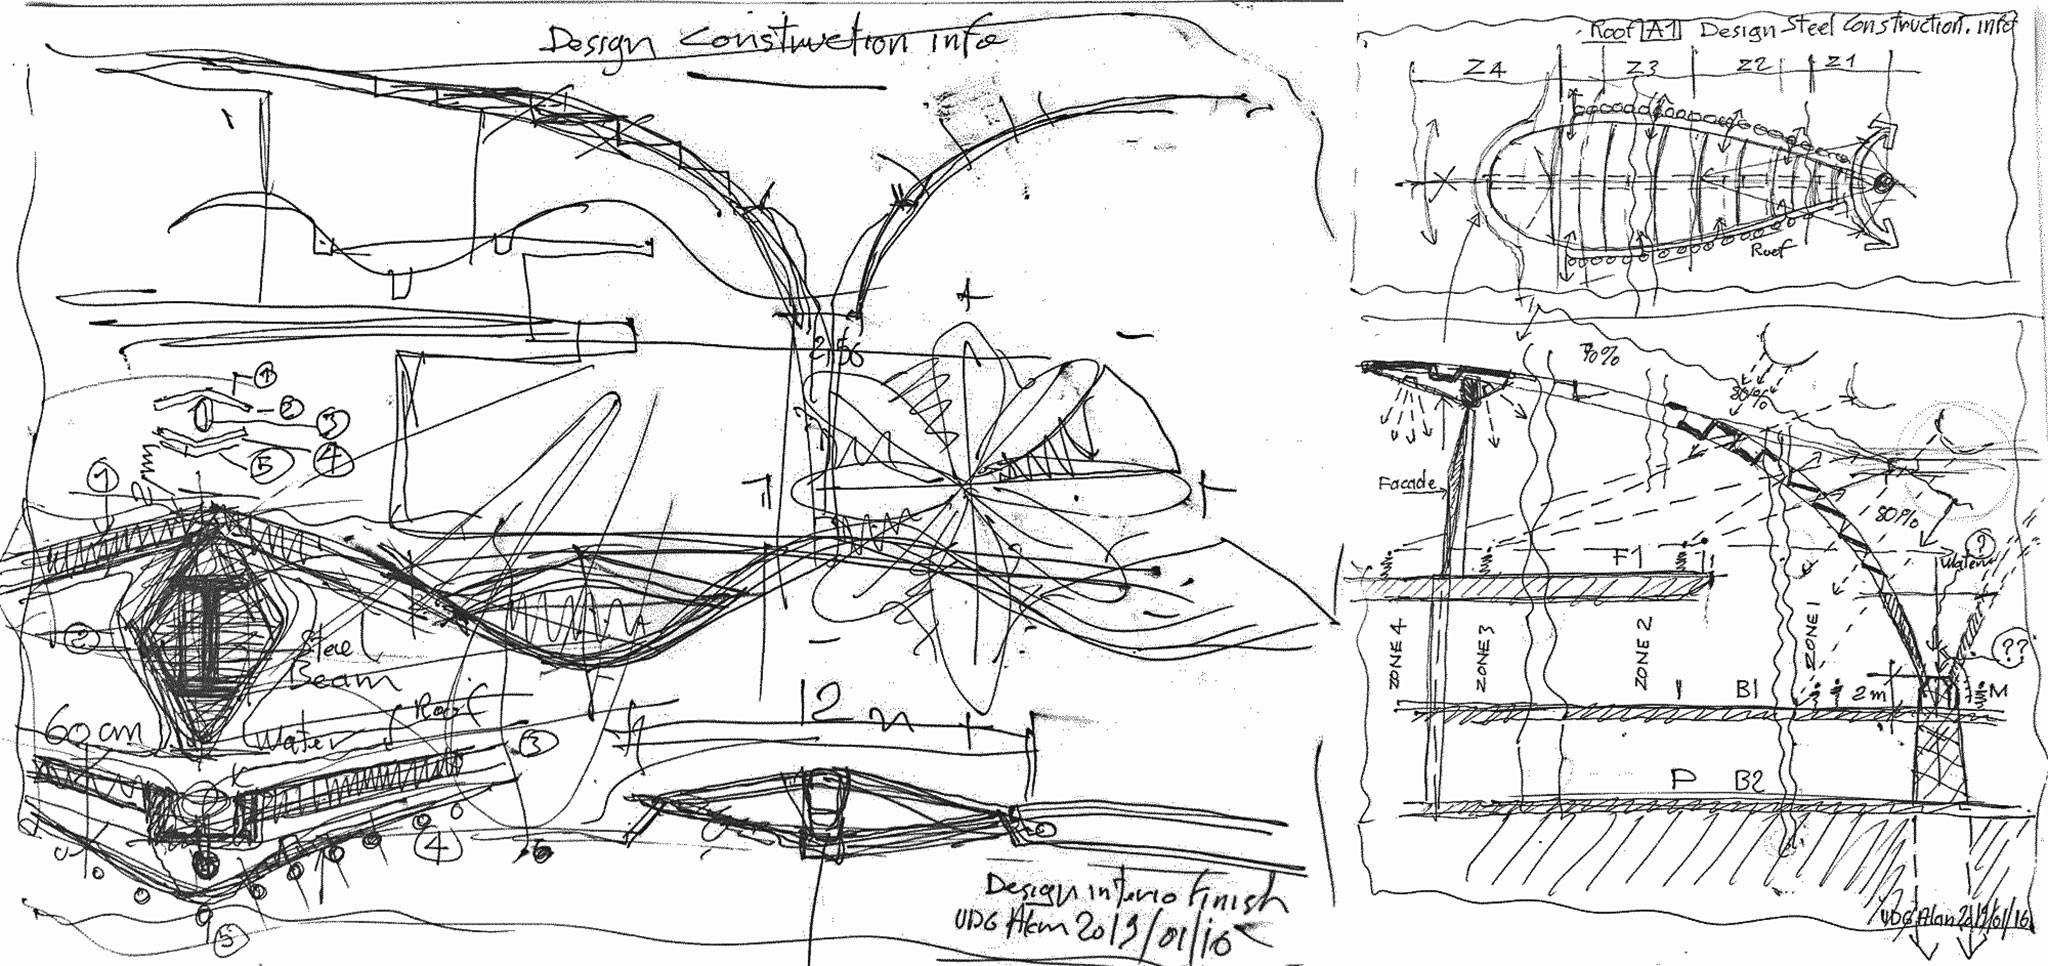 Design Construction info
2,56
1
2
3
4
5
1
2
Steel
Beam
60 cm
Water
Roof
3
4
5
12 m
Design interio Finish
UDG Alan 2019/01/16
Roof A1 Design Steel Construction.info
Z4 Z3 Z2 Z1
Roof
70%
80%
Facade
80%
F1
Water
?
ZONE 4
ZONE 3
ZONE 2
ZONE 1
??
B1
2m
M
P B2
UDG Alan 2019/01/16